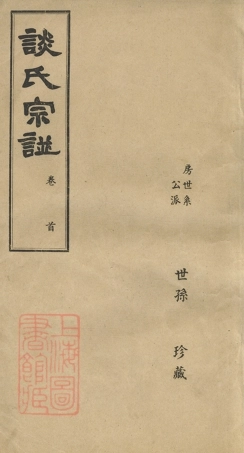 談氏宗譜 卷首
房世系
公派
世孫 珍藏
上海圖
書館藏